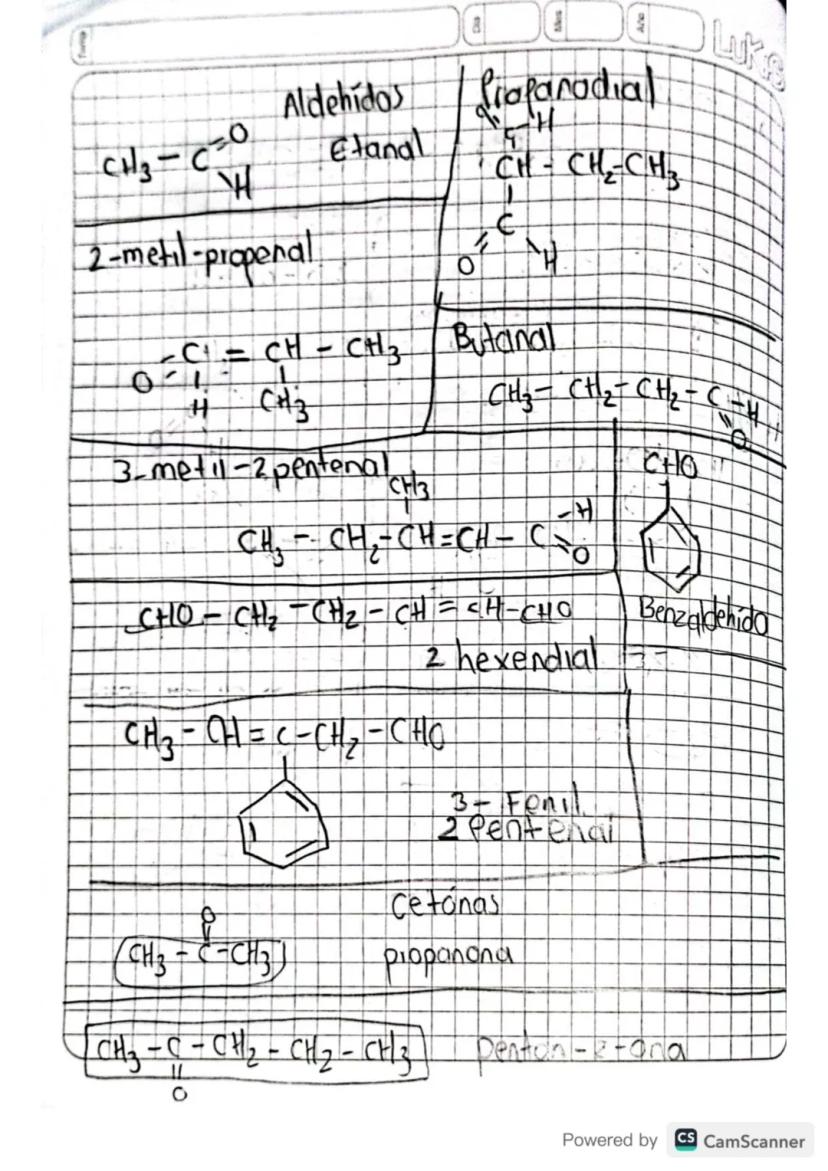 Tema
Día
Mes
Año
LUKAS
Aldehídos
Etanal
CH3 - C=O
H
Propanodial
O=C-H
CH - CH2-CH3
C
O H
2-metil-propenal
O=C = CH - CH3
H CH3
Butanal
CH3 - CH2 - CH2 - C-H
O
3-metil-2pentenal
CH3
CH3 - CH2-CH=CH - C-H
O
CHO
Benzaldehído
CHO - CH2 - CH2 - CH = CH-CHO
2 hexendial
CH3 - CH = C-CH2 - CHO
3- Fenil
2 Pentenal
Cetónas
O
CH3 - C-CH3
propanona
CH3 - C - CH2 - CH2 - CH3
O
pentan-2-ona
Powered by CS CamScanner